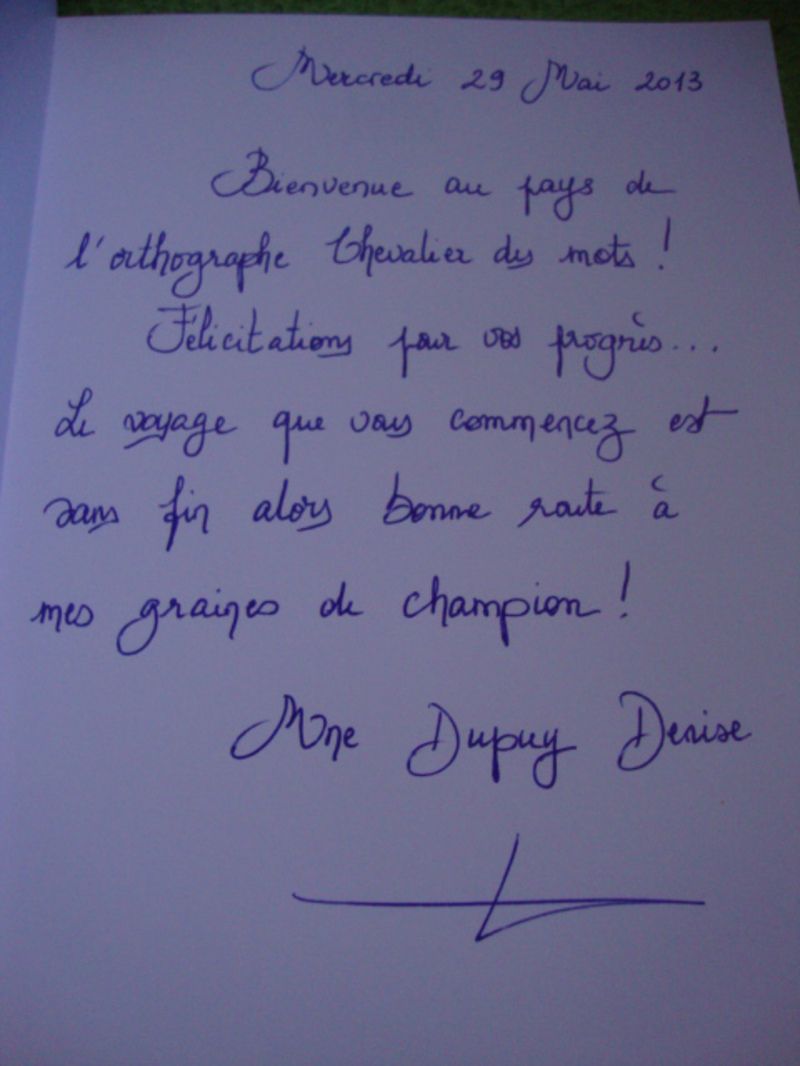 Mercredi 29 Mai 2013
Bienvenue au pays de
l'orthographe Chevalier des mots !
Félicitations pour vos progrès...
Le voyage que vous commencez est
sans fin alors bonne route à
mes graines de champion !
Mme Dupuy Denise